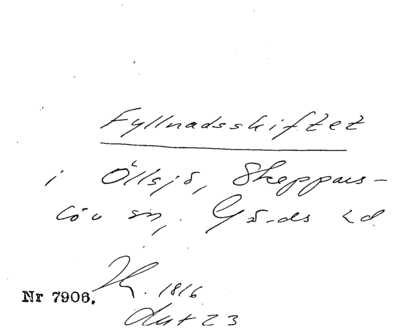 Fyllnadsskiftet
i Öllsjö, Skeppars-
löv sn, Gärds hd.
Nr 7906. 1816
dut 23